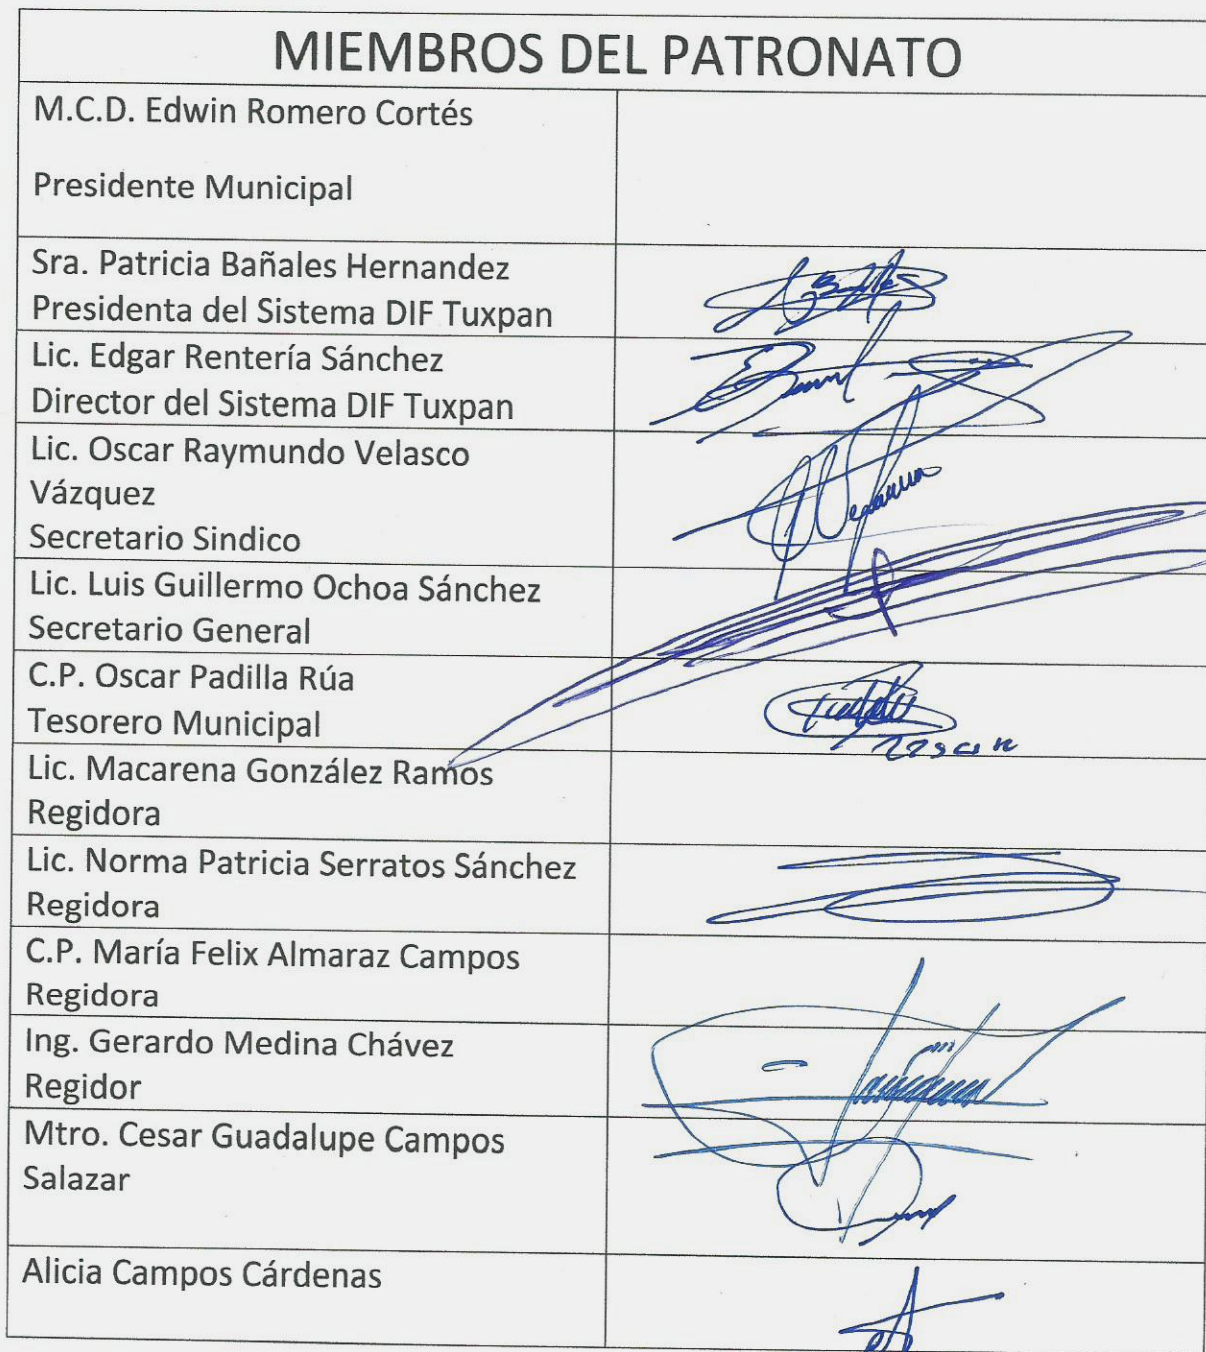 MIEMBROS DEL PATRONATO
M.C.D. Edwin Romero Cortés
Presidente Municipal
Sra. Patricia Bañales Hernandez
Presidenta del Sistema DIF Tuxpan
Lic. Edgar Rentería Sánchez
Director del Sistema DIF Tuxpan
Lic. Oscar Raymundo Velasco
Vázquez
Secretario Sindico
Lic. Luis Guillermo Ochoa Sánchez
Secretario General
C.P. Oscar Padilla Rúa
Tesorero Municipal
Lic. Macarena González Ramos
Regidora
Lic. Norma Patricia Serratos Sánchez
Regidora
C.P. María Felix Almaraz Campos
Regidora
Ing. Gerardo Medina Chávez
Regidor
Mtro. Cesar Guadalupe Campos
Salazar
Alicia Campos Cárdenas